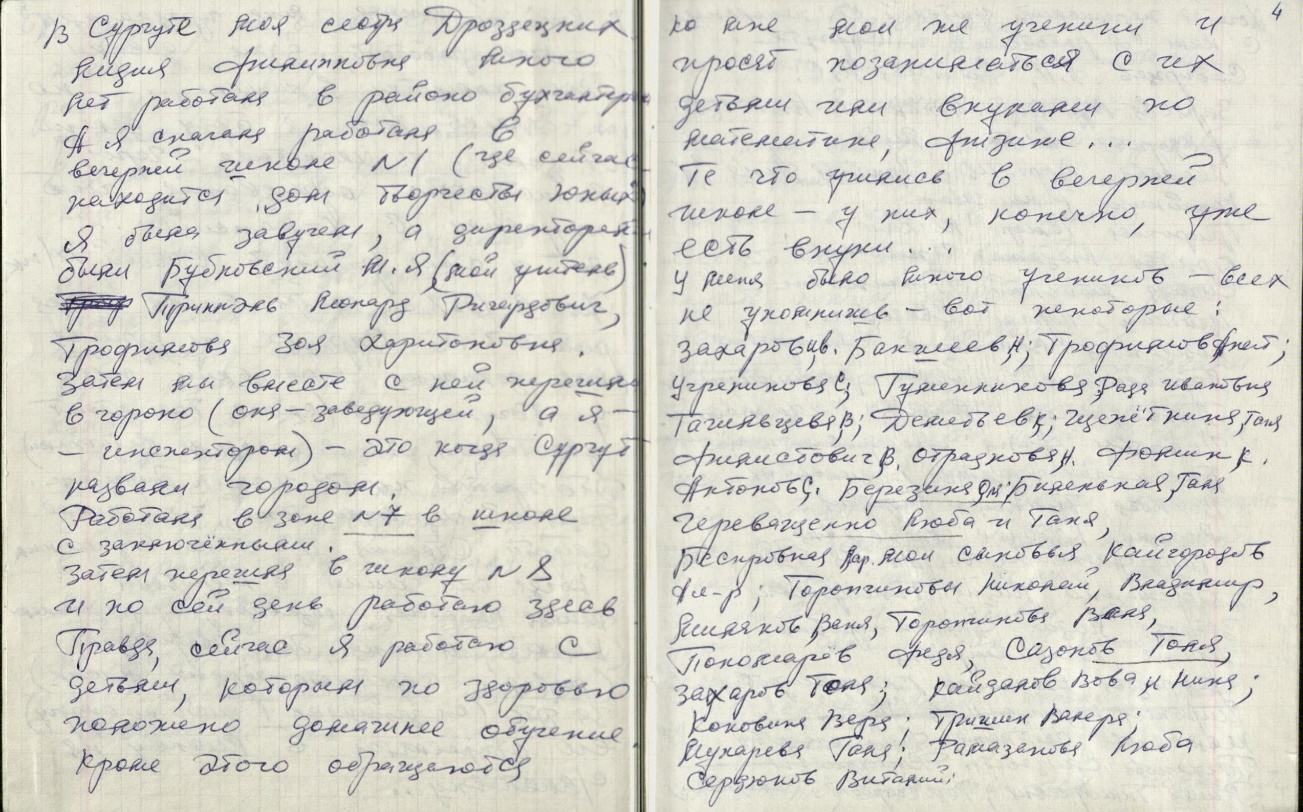 В Сургуте моя сестра Дроздецких
Лидия Филипповна много
лет работала в районо бухгалтером
А я сначала работала в
вечерней школе №1 (где сейчас
находится дом творчества юных)
Я была завучем, а директорами
были Бубновский М.Я (мой учитель)
Принпэнь Леонард Ричардович,
Трофимова Зоя Харитоновна.
Затем мы вместе с ней перешли
в гороно (она – заведующей, а я –
– инспектором) – это когда Сургут
назвали городом.
Работала в зоне №7 в школе
с заключёнными.
Затем перешла в школу №8
и по сей день работаю здесь
Правда, сейчас я работаю с
детьми, которым по здоровью
положено домашнее обучение.
Кроме этого обращаются
4
ко мне мои же ученики и
просят позаниматься с их
детьми или внуками по
математике, физике...
Те что учились в вечерней
школе – у них, конечно, уже
есть внуки...
У меня было много учеников – всех
не упомнишь – вот некоторые:
Захаров ив. Бакшеев Н; Трофимов Анат;
Угреникова С; Гуменникова Рада Ивановна
Тагильцева В; Дементьев К; Щепёткина Таня
Филистович В. Отраднова Н. Фомин К.
Антонов С. Березина Ом; Биленькая Галя
Череващенко Люба и Галя,
Бескровная Лар. мои сыновья Кайгородов
Ал-р; Торопчиновы Николай, Владимир,
Шиляков Ваня, Торопчинова Валя,
Пономарёв Федя, Сазонов Толя,
Захаров Толя; Кайдалов Вова и Нина;
Коковина Вера; Гришин Валера;
Мухарева Галя; Рамазанова Люба
Сердюков Виталий;